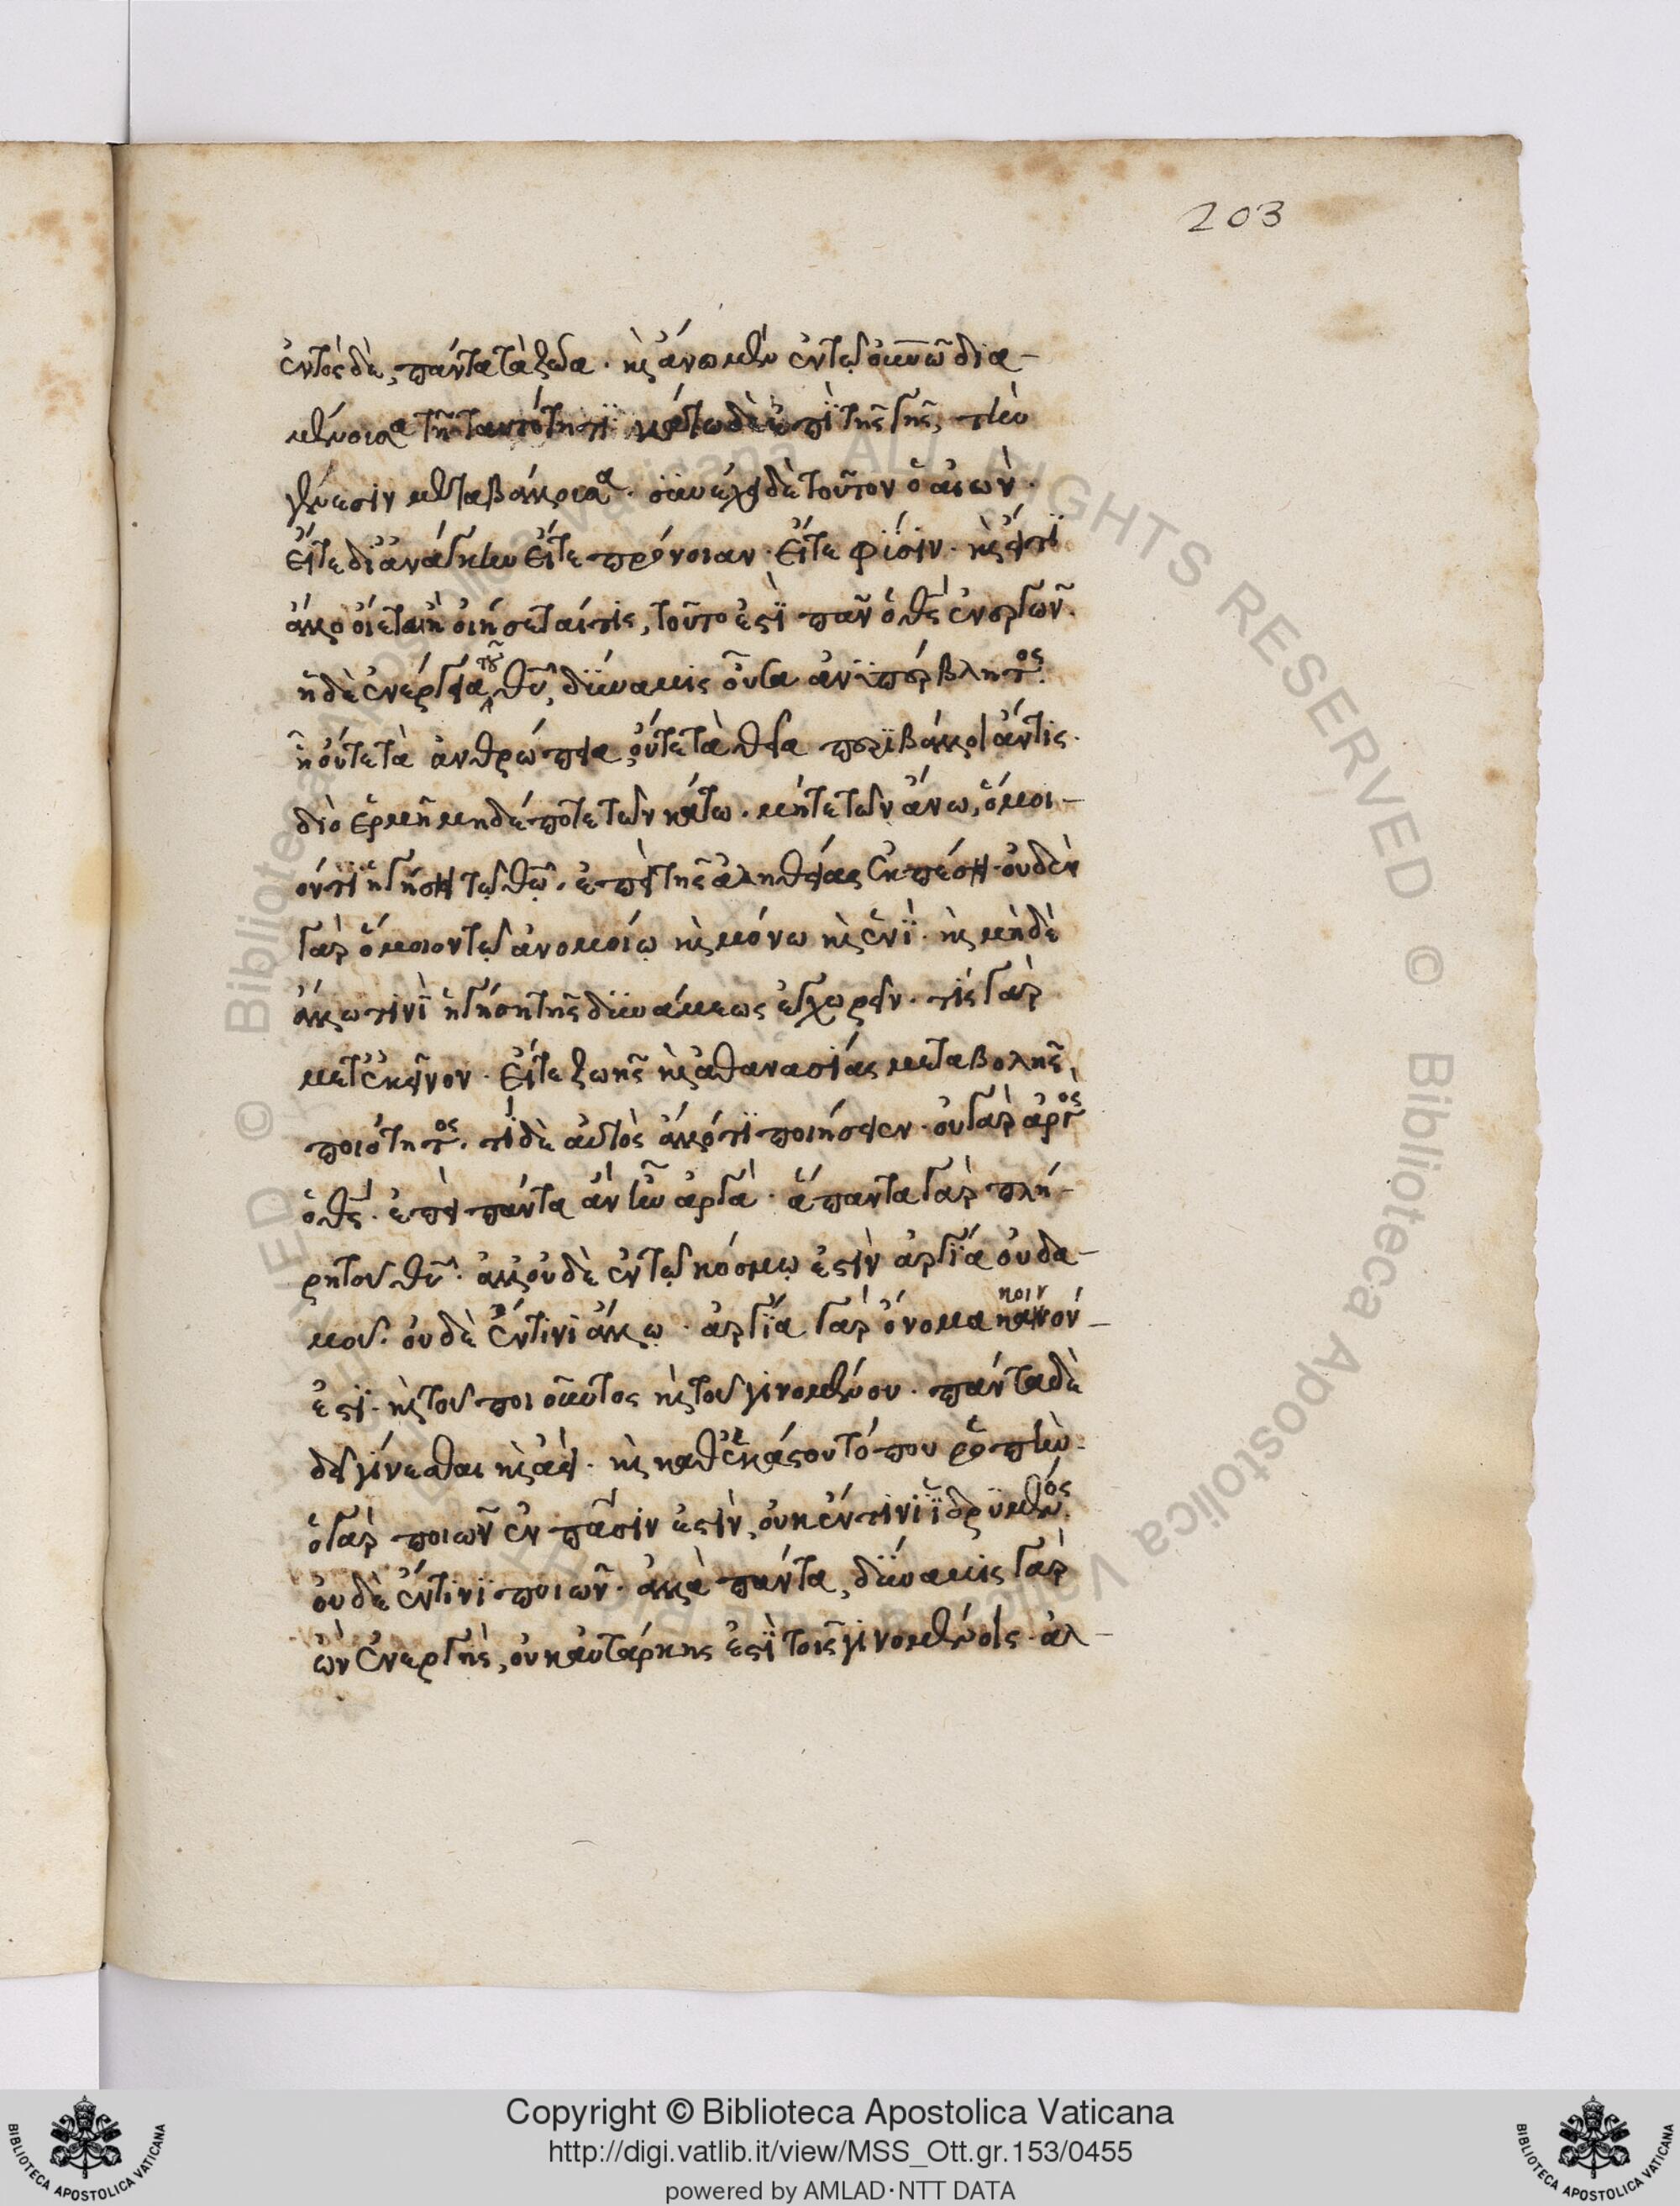 203
ἐντὸς δὲ, πάντα τὰ ζῶα. καὶ ἄνω μὲν ἐν τῷ οὐνῷ δια-
μένουσα τῇ ταυτότητι. κάτω δὲ ἐπὶ τῆς γῆς, τὴν
γένεσιν μεταβάλλουσα. συνέχει δὲ τοῦτον ὁ αἰών.
εἴτε δι ἀνάγκην εἴτε πρόνοιαν. εἴτε φύσιν. καὶ εἴ τι
ἄλλο οἴεται ἢ οἰήσεταί τις, τοῦτο ἐστὶ πᾶν ὁ θς ἐνεργῶν.
ἡ δὲ ἐνέργεια τοῦ θυ, δύναμις οὖσα ἀνυπέρβλητος.
ᾗ οὔτε τὰ ἀνθρώπεια, οὔτε τὰ θεῖα παραβάλοι ἄν τις.
διὸ ἑρμῆ μηδέποτε τῶν κάτω. μήτε τῶν ἄνω, ὅμοι-
όν τι ἡγήσῃ τῷ θῷ. ἐπεὶ τῆς ἀληθείας ἐκπέσῃ. οὐδὲν
γὰρ ὅμοιον τῷ ἀνομοίῳ καὶ μόνω καὶ ἑνί. καὶ μηδὲ
ἄλλω τινὶ ἡγήσῃ τῆς δυνάμεως ἐκχωρεῖν. τίς γὰρ
μετ ἐκεῖνον. εἴτε ζωῆς καὶ ἀθανασίας μεταβολῆς,
ποιότητος. τί δὲ αὐτὸς ἄλλό τι ποιήσειεν. οὐ γὰρ ἀργὸς
ὁ θς. ἐπεὶ πάντα ἂν ἦν ἀργά. ἅπαντα γὰρ πλή-
ρη τοῦ θυ. ἀλλ οὐδὲ ἐν τῷ κόσμῳ ἐστὶν ἀργία οὐδα-
μοῦ. οὐδὲ ἔν τινι ἄλλῳ. ἀργία γὰρ ὄνομα κοιν κενόν
ἐστι. καὶ τοῦ ποιοῦντος καὶ τοῦ γινομένου. πάντα δὲ
δεῖ γίνεσθαι καὶ ἀεί. καὶ καθ ἑκάστου τόπου ῥοπήν.
ὁ γὰρ ποιῶν ἐν πᾶσιν ἐστὶν, οὐκ ἔν τινι ἱδρυμένος.
οὐδὲ ἔν τινι ποιῶν. ἀλλὰ πάντα, δύναμις γὰρ
ὢν ἐνεργής, οὐκ αὐτάρκης ἐστὶ τοῖς γινομένοις. ἀλ-
Copyright © Biblioteca Apostolica Vaticana
http://digi.vatlib.it/view/MSS_Ott.gr.153/0455
powered by AMLAD·NTT DATA